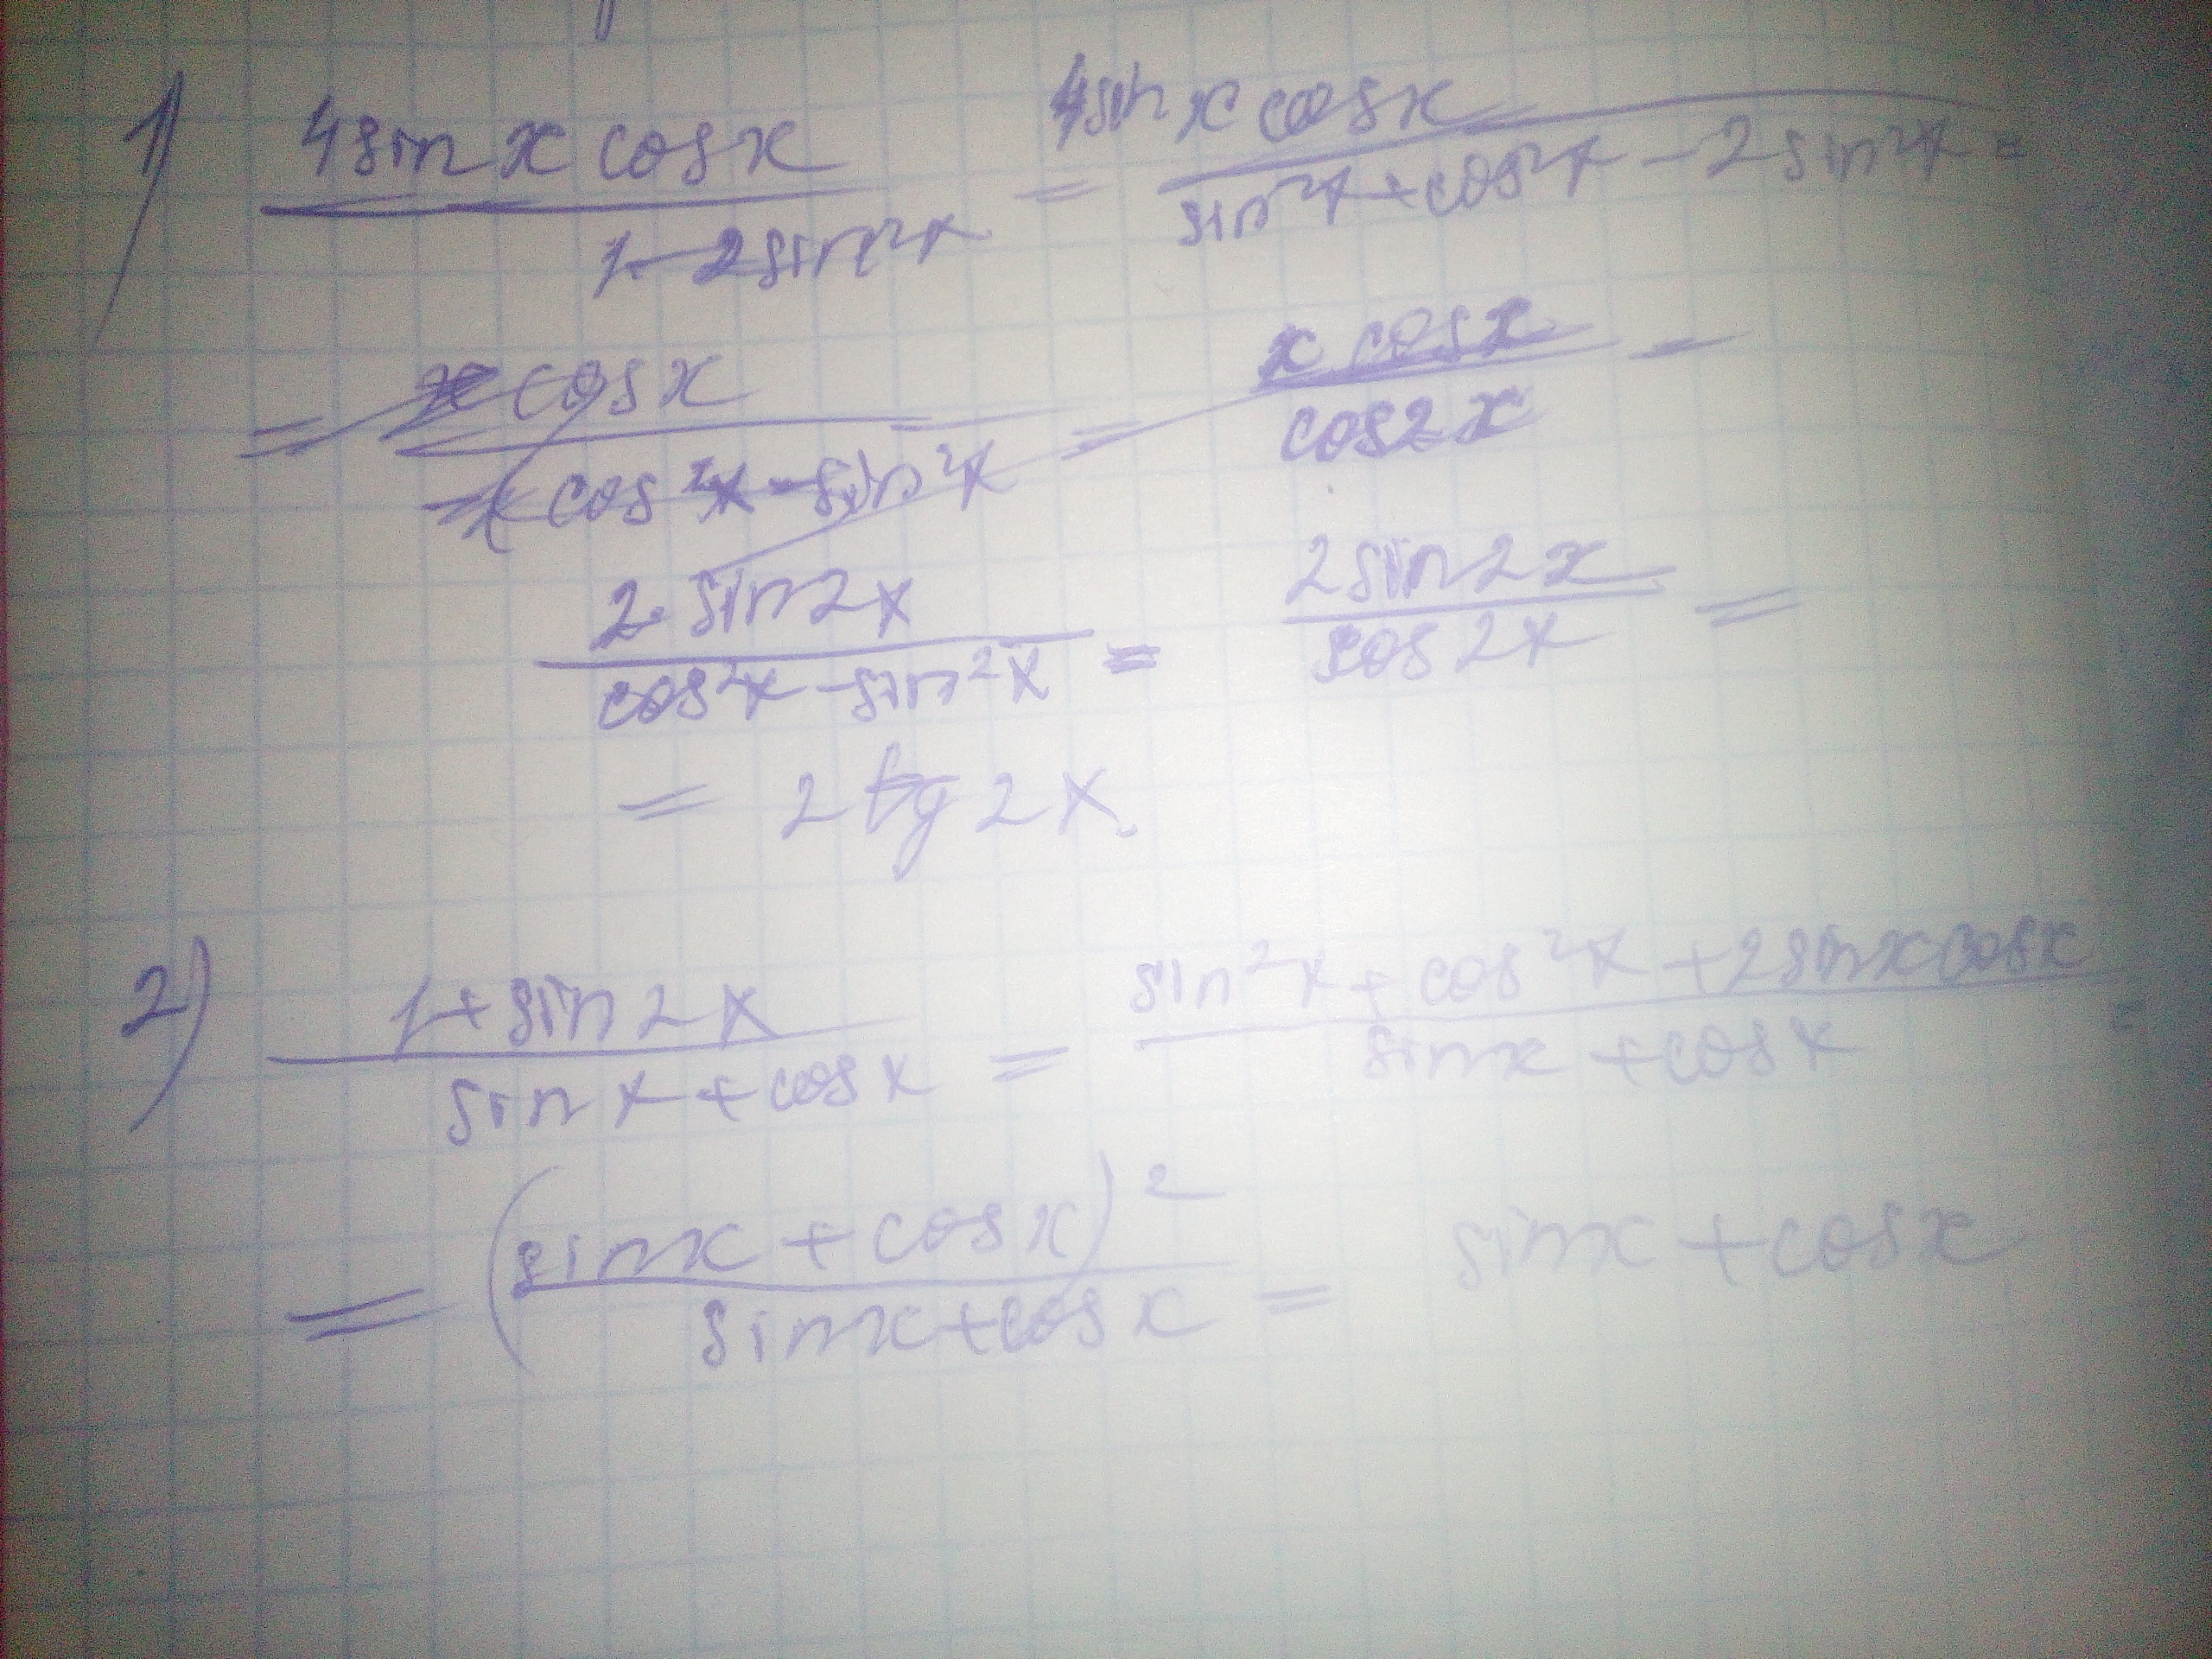 1) 4sinx cosx / 1-2sin²x = 4sinx cosx / sin²x+cos²x-2sin²x =
= x cosx / cos²x-sin²x = x cosx / cos2x =
2·sin2x / cos²x-sin²x = 2sin2x / cos2x =
= 2tg2x
2) 1+sin2x / sinx+cosx = sin²x+cos²x+2sinxcosx / sinx+cosx =
= (sinx+cosx)² / sinx+cosx = sinx+cosx